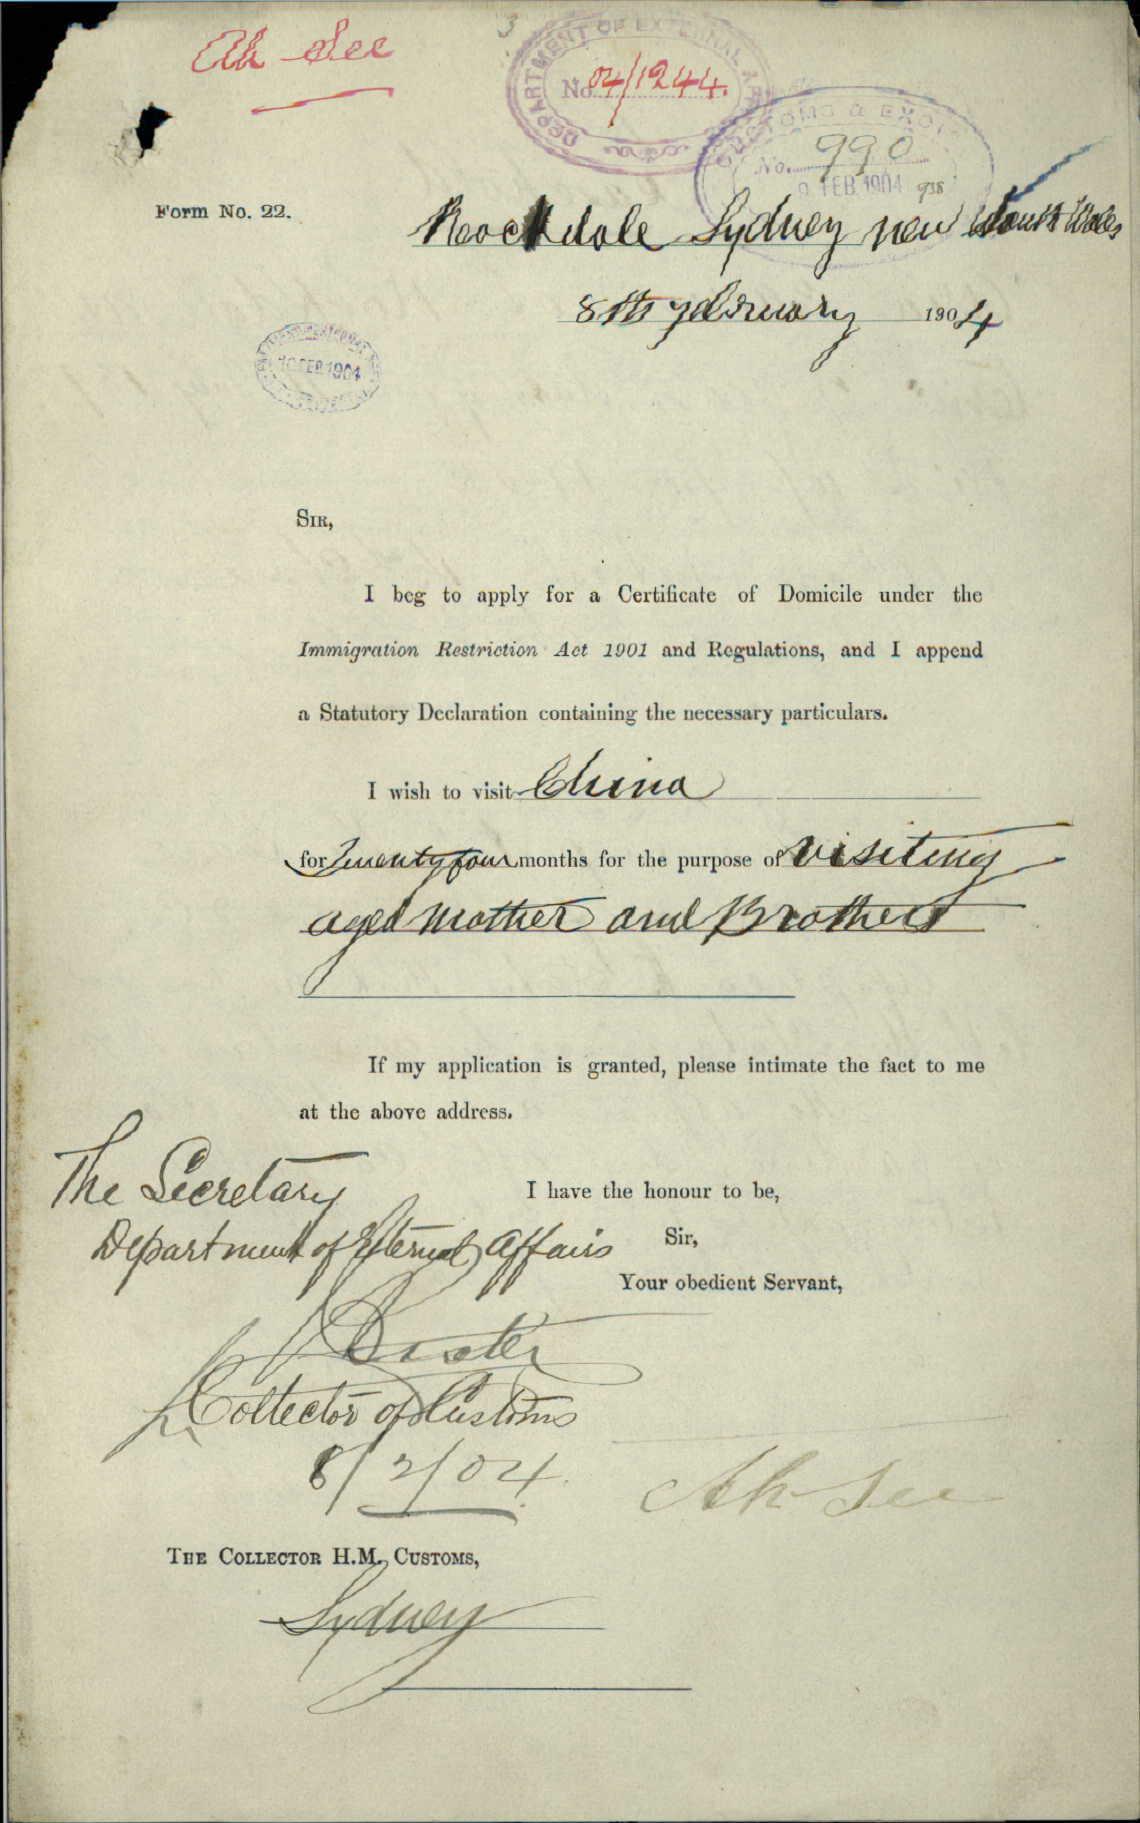 Ah See
DEPARTMENT OF EXTERNAL
No 04/1244.
CUSTOMS & EXCISE
No. 990
9 FEB 1904 938
Form No. 22.
Rockdale Sydney new South Wales
8th February 1904
10 FEB 1904
SIR,
I beg to apply for a Certificate of Domicile under the
Immigration Restriction Act 1901 and Regulations, and I append
a Statutory Declaration containing the necessary particulars.
I wish to visit China
for Twenty four months for the purpose of visiting
aged mother and Brothers
If my application is granted, please intimate the fact to me
at the above address.
The Secretary
I have the honour to be,
Department of External Affairs
Sir,
Your obedient Servant,
Baxter
Collector of Customs
8/2/04.
Ah See
THE COLLECTOR H.M. CUSTOMS,
Sydney